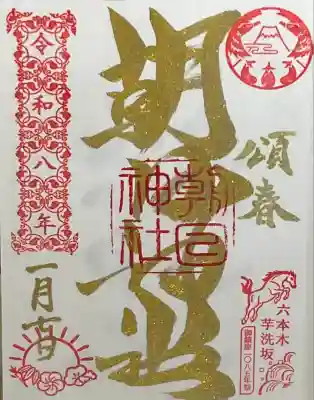 頌春
六本木
芋洗坂
朝日神社
朝日
神社
令和八年
一月吉日